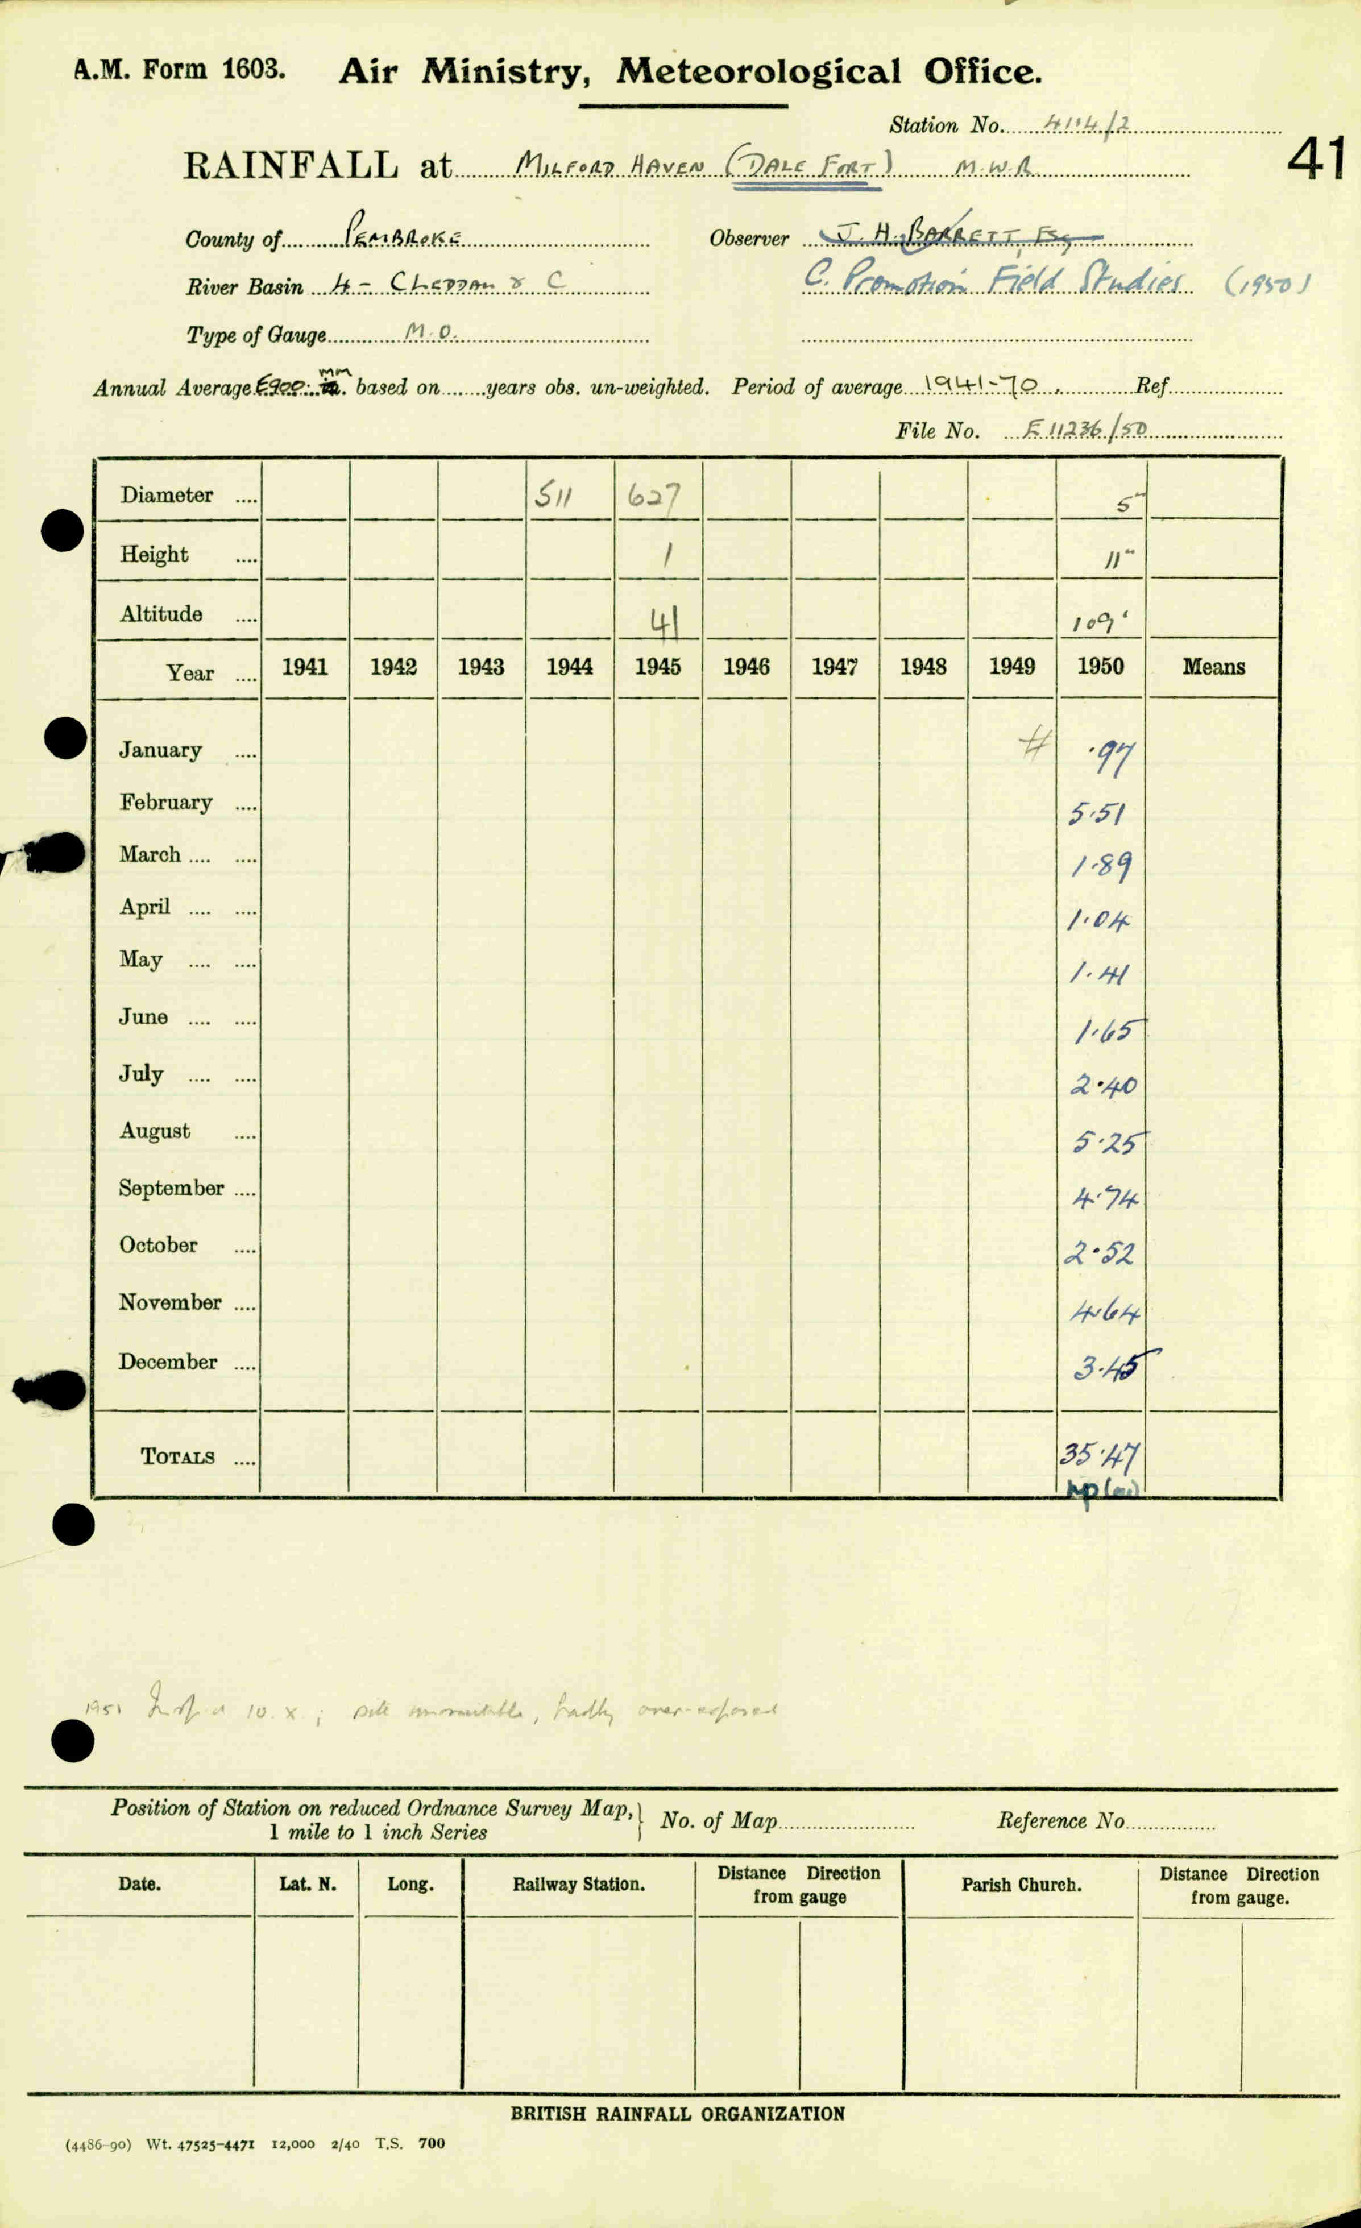 A.M. Form 1603. Air Ministry, Meteorological Office.
Station No. 414/2
RAINFALL at MILFORD HAVEN (DALE FORT) M.W.R.
41
County of PEMBROKE Observer J. H. BARRETT, Esq
River Basin 4 - CLEDDAU & C C. Promotion Field Studies (1950)
Type of Gauge M.O.
Annual Average E900 mm in. based on years obs. un-weighted. Period of average 1941-70. Ref.
File No. E 11236/50
Diameter 511 627 5"
Height 1 11"
Altitude 41 109'
Year 1941 1942 1943 1944 1945 1946 1947 1948 1949 1950 Means
January # ·97
February 5·51
March 1·89
April 1·04
May 1·41
June 1·65
July 2·40
August 5·25
September 4·74
October 2·52
November 4·64
December 3·45
TOTALS 35·47
1951 10. x ; site unsuitable, badly over-exposed
Position of Station on reduced Ordnance Survey Map, } No. of Map Reference No.
1 mile to 1 inch Series
Date. Lat. N. Long. Railway Station. Distance Direction from gauge Parish Church. Distance Direction from gauge.
BRITISH RAINFALL ORGANIZATION
(4486-90) Wt. 47525-4471 12,000 2/40 T.S. 700